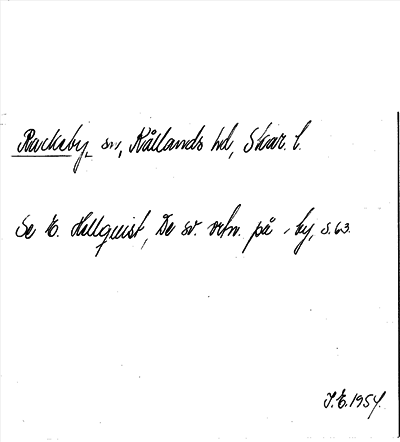 Rackeby, sn, Kållands hd, Skar. l.
Se E. Hellquist, De sv. ortn. på -by, s. 63.
J.E. 1954.